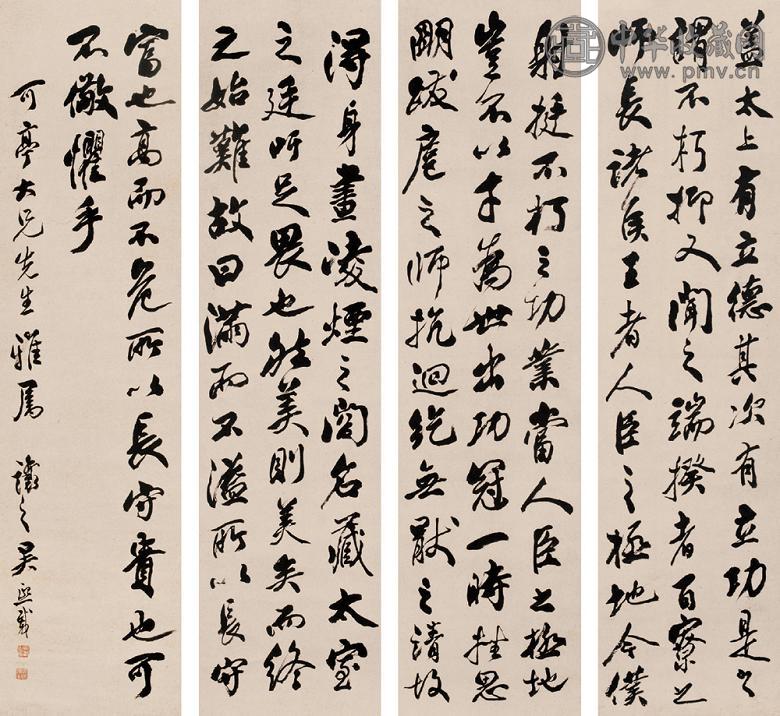 蓋太上有立德其次有立功是之
謂不朽抑又聞之端揆者百寮之
師長諸侯王者人臣之極地今僕
射挺不朽之功業當人臣之極地
豈不以才為世出功冠一時挫思
明跋扈之師抗迴紇無猒之請故
得身畫凌煙之閣名藏太室
之廷吁足畏也然美則美矣而終
之始難故曰滿而不溢所以長守
富也高而不危所以長守貴也可
不儆懼乎
可亭大兄先生雅屬 讓之吳熙載
中华收藏网
www.pmv.cn